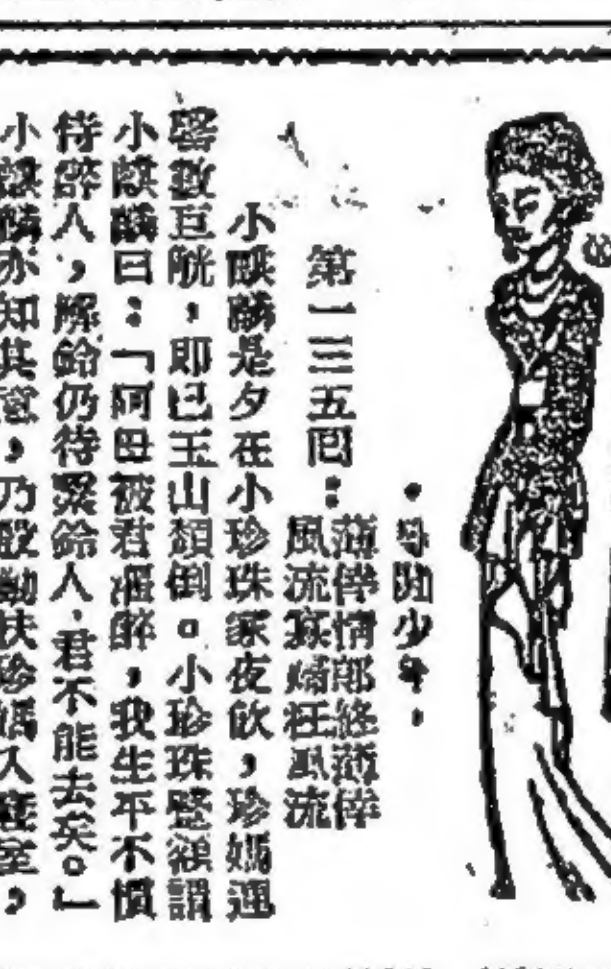 ·乌閒少年·
第一三五回：
薄倖情郎終薄倖
風流寡婦枉風流
小麒麟是夕在小珍珠家夜飲，珍媽連
罄數巨觥，即已玉山頹倒。小珍珠蹙額謂
小麒麟曰：「阿母被君灌醉，我生平不慣
侍醉人，解鈴仍待繫鈴人，君不能去矣。」
小麒麟亦知其意，乃殷勤扶珍媽入寢室，